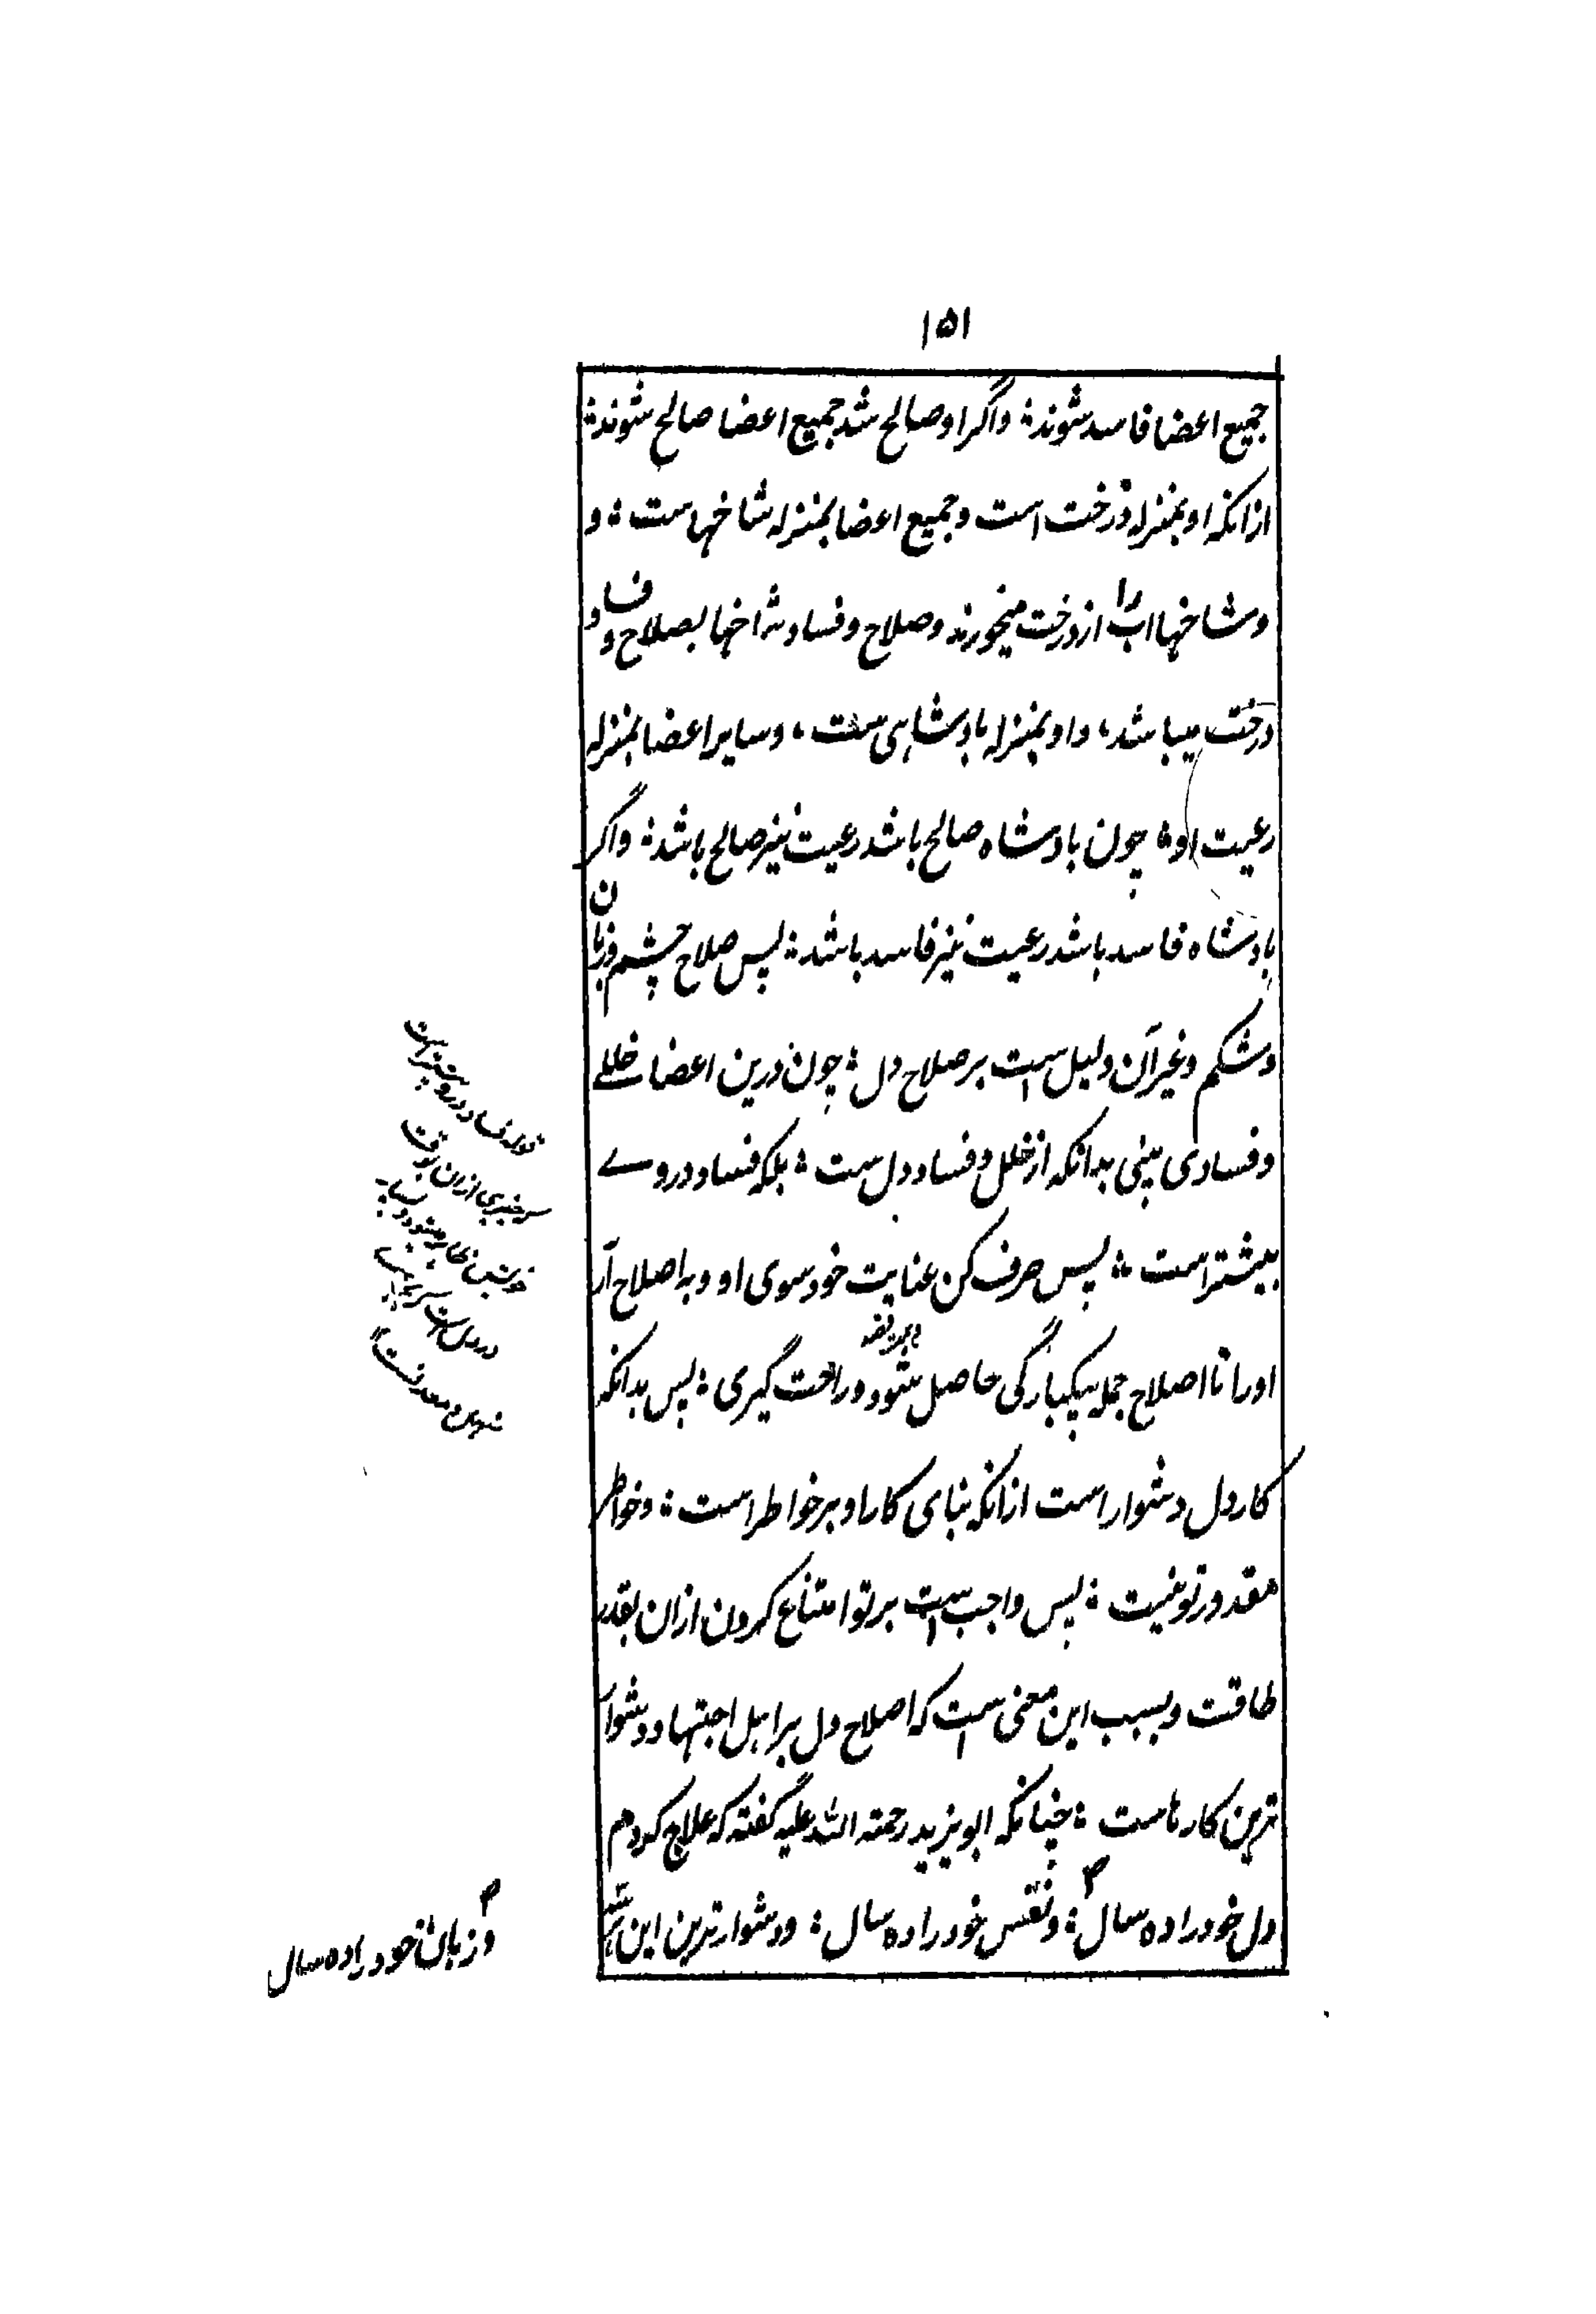 ۱۵۱
جمیع اعضا فاسد شوند؛ واگر او صالح شد جمیع اعضا صالح شوند؛
ازانکه او بمنزله درخت است وجمیع اعضا بمنزله شاخهاست؛ و
وشاخها اب را از درخت میخورند وصلاح وفساد شاخها بصلاح و فساد
درخت میباشد، واو بمنزله بادشاهی ست، وسایر اعضا بمنزله
رعیت او؛ چون بادشاه صالح باشد رعیت نیز صالح باشد؛ واگر
بادشاه فاسد باشد رعیت نیز فاسد باشد؛ پس صلاح چشم وزبان
وشکم وغیر آن دلیل است بر صلاح دل؛ چون درین اعضا خللے
وفسادی بینی بدانکه از خلل وفساد دل ست؛ بلکه فساد دروے
بیشتر است؛ پس صرف کن عنایت خود سوی او وبه اصلاح آر
اورا تا اصلاح جمله بیکبارگی حاصل شود وراحت گیری؛ پس بدانکه
کار دل دشوار است ازانکه بنای کار او بر خواطر است؛ وخواطر
مقدور تو نیست؛ پس واجب است بر تو امتناع کردن ازان بقدر
طاقت وبسبب این معنی است که اصلاح دل بر اهل اجتهاد دشوار
ترین کارهاست؛ چنانکه ابو یزید رحمته الله علیه گفته که علاج کردم
دل خود را ده سال؛ ونفس خود را ده سال؛ ودشوار ترین این
وزبان خود را ده سال